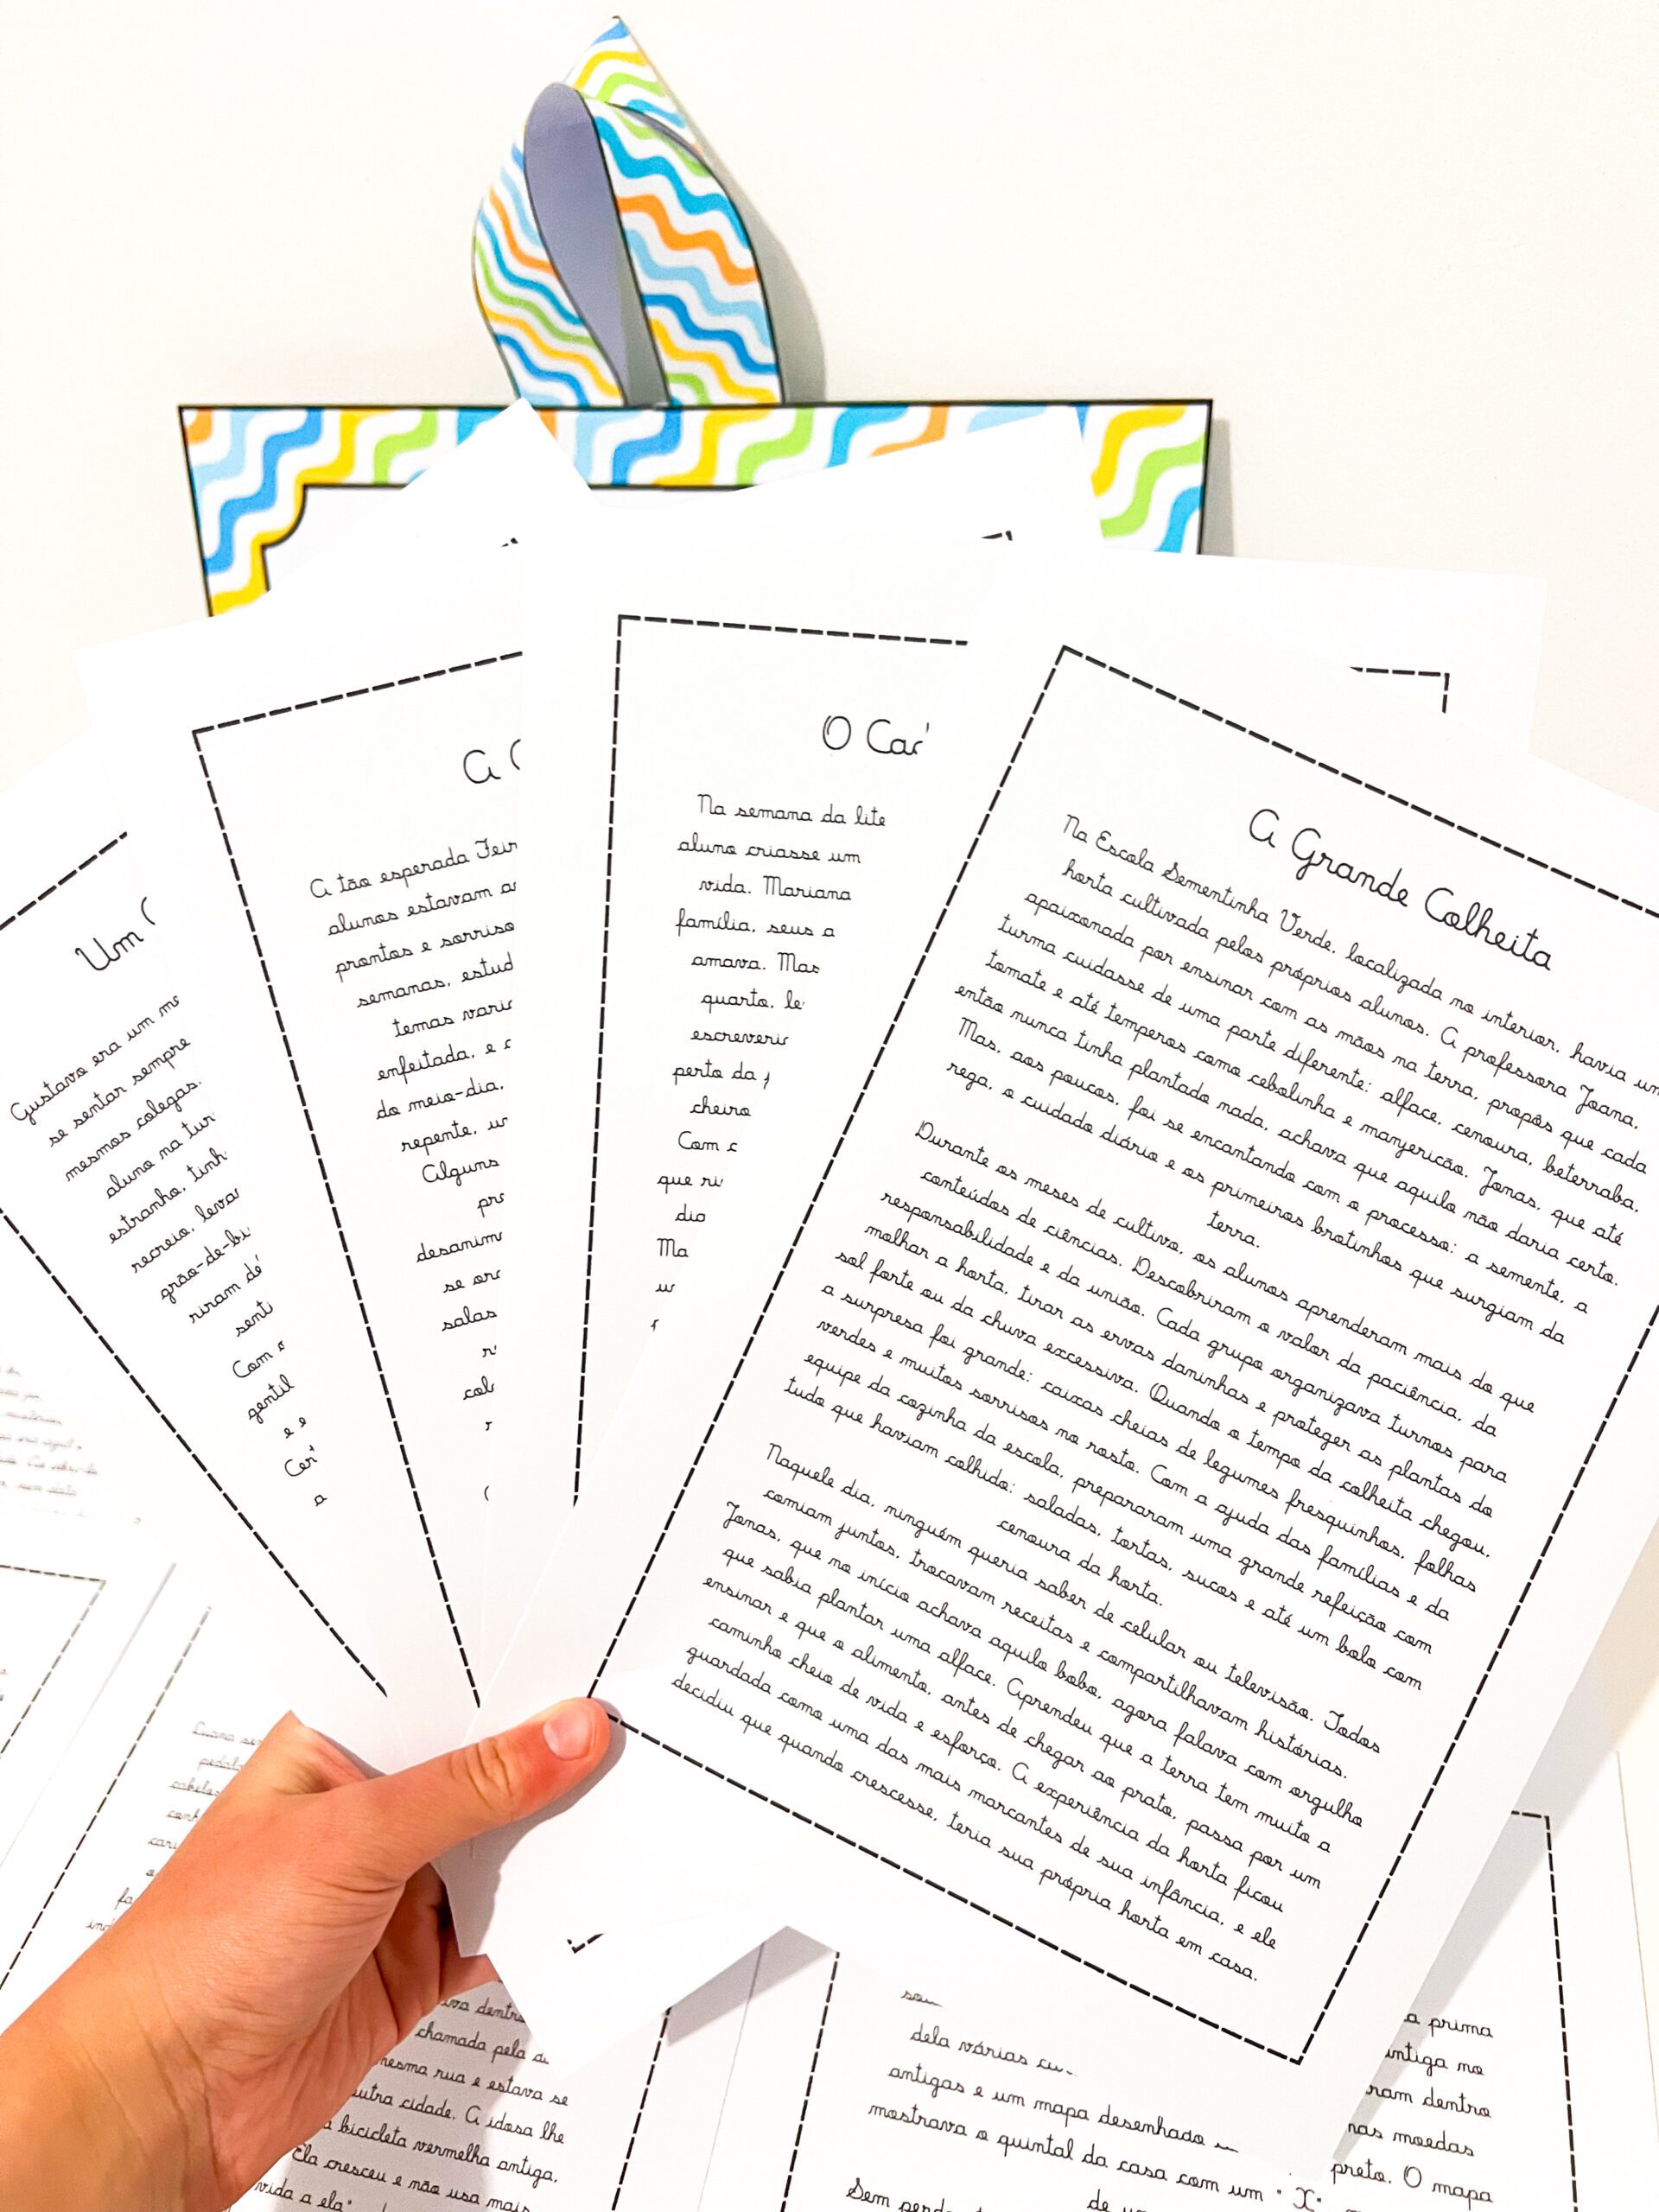 A Grande Colheita
Na Escola Sementinha Verde, localizada no interior, havia um
horta cultivada pelos próprios alunos. A professora Joana,
apaixonada por ensinar com as mãos na terra, propôs que cada
turma cuidasse de uma parte diferente: alface, cenoura, beterraba,
tomate e até temperos como cebolinha e manjericão. Jonas, que até
então nunca tinha plantado nada, achava que aquilo não daria certo.
Mas, aos poucos, foi se encantando com o processo: a semente, a
rega, o cuidado diário e os primeiros brotinhos que surgiam da
terra.
Durante os meses de cultivo, os alunos aprenderam mais do que
conteúdos de ciências. Descobriram o valor da paciência, da
responsabilidade e da união. Cada grupo organizava turnos para
molhar a horta, tirar as ervas daninhas e proteger as plantas do
sol forte ou da chuva excessiva. Quando o tempo da colheita chegou,
a surpresa foi grande: caixas cheias de legumes fresquinhos, folhas
verdes e muitos sorrisos no rosto. Com a ajuda das famílias e da
equipe da cozinha da escola, prepararam uma grande refeição com
tudo que haviam colhido: saladas, tortas, sucos e até um bolo com
cenoura da horta.
Naquele dia, ninguém queria saber de celular ou televisão. Todos
comiam juntos, trocavam receitas e compartilhavam histórias.
Jonas, que no início achava aquilo bobo, agora falava com orgulho
que sabia plantar uma alface. Aprendeu que a terra tem muito a
ensinar e que o alimento, antes de chegar ao prato, passa por um
caminho cheio de vida e esforço. A experiência da horta ficou
guardada como uma das mais marcantes de sua infância, e ele
decidiu que quando crescesse, teria sua própria horta em casa.
O Car
Na semana da lite
aluno criasse um
vida. Mariana
família, seus a
amava. Mas
quarto, le
escreveri
perto da
cheiro
Com
que ri
dia
Ma
A
A tão esperada Feir
alunos estavam
prontos e sorriso
semanas, estud
temas vari
enfeitada, e
do meio-dia,
repente, u
Alguns
pr
desanim
se or
salas
col
Um
Gustavo era um m
se sentar sempre
mesmos colegas.
aluno na tur
estranho, tinh
recreio, leva
grão-de-bi
riram de
senti
Com
gentil
e e
Cer
a
pedal
cabelo
dentr
chamada pela
mesma rua e estava se
outra cidade. A idosa lhe
bicicleta vermelha antiga,
Ela cresceu e não usa mais
vida a ela"
dela várias
antigas e um mapa desenhado
mostrava o quintal da casa com um "X"
Sem
a prima
antiga no
ram dentro
nas moedas
preto. O mapa